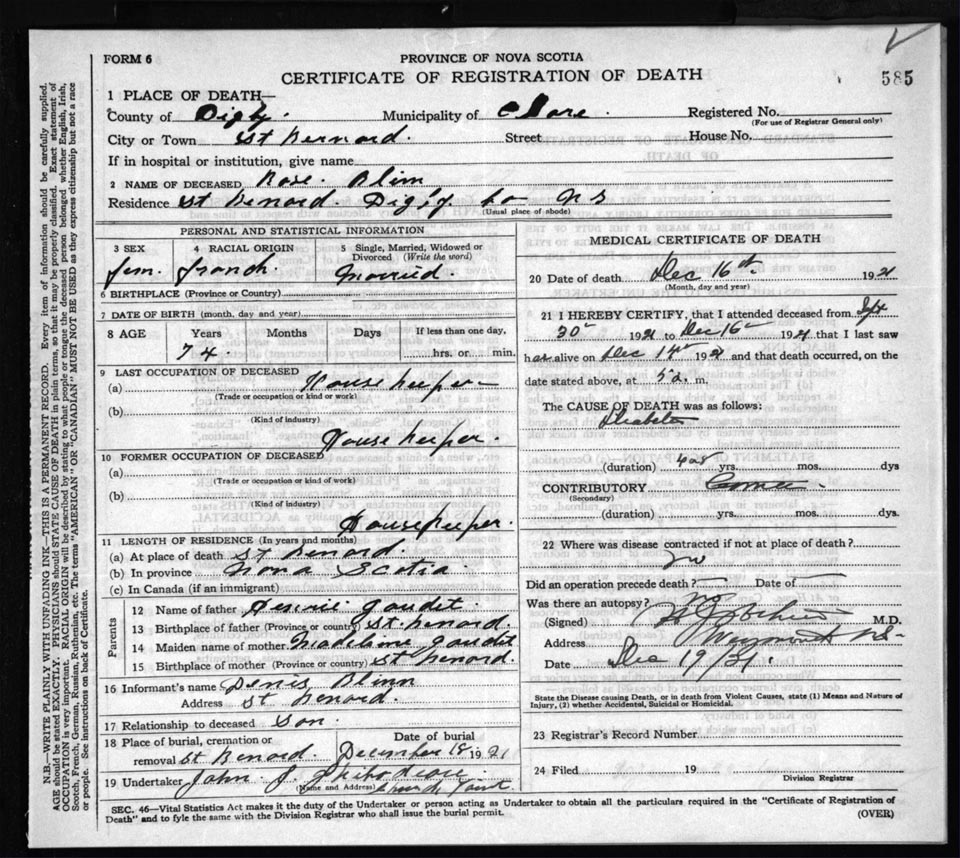 FORM 6
PROVINCE OF NOVA SCOTIA
CERTIFICATE OF REGISTRATION OF DEATH
585
1 PLACE OF DEATH—
County of Digby. Municipality of Clare. Registered No.
(For use of Registrar General only)
City or Town St Bernard. Street House No.
If in hospital or institution, give name
2 NAME OF DECEASED Rose. Blim
Residence St Benard. Digby Co NS
(Usual place of abode)
PERSONAL AND STATISTICAL INFORMATION
3 SEX 4 RACIAL ORIGIN 5 Single, Married, Widowed or Divorced (Write the word)
fem. franch. Married.
6 BIRTHPLACE (Province or Country)
7 DATE OF BIRTH (month, day and year)
8 AGE Years Months Days If less than one day,
74. hrs. or min.
9 LAST OCCUPATION OF DECEASED
(a) House keeper
(Trade or occupation or kind or work)
(b)
(Kind of industry)
House keeper.
10 FORMER OCCUPATION OF DECEASED
(a)
(Trade or occupation or kind of work)
(b)
(Kind of industry)
Housekeeper.
11 LENGTH OF RESIDENCE (In years and months)
(a) At place of death St Benard.
(b) In province Nova Scotia
(c) In Canada (if an immigrant)
Parents
12 Name of father Gaudit.
13 Birthplace of father (Province or country) St. Benard.
14 Maiden name of mother Madeline Gaudit
15 Birthplace of mother (Province or country) St Benard.
16 Informant's name Denis Blinn
Address St Benard.
17 Relationship to deceased Son.
18 Place of burial, cremation or removal St Benard. Date of burial December 18 1921
19 Undertaker John J. Thibodeau
(Name and Address)
MEDICAL CERTIFICATE OF DEATH
20 Date of death Dec 16th. 1921
(Month, day and year)
21 I HEREBY CERTIFY, that I attended deceased from Sept
30 1921 to Dec 16 1921 that I last saw
her alive on Dec 14 1921 and that death occurred, on the
date stated above, at 5 a. m.
The CAUSE OF DEATH was as follows:
Diabetes
(duration) yrs. mos. dys
CONTRIBUTORY Coma
(Secondary)
(duration) yrs. mos. dys.
22 Where was disease contracted if not at place of death?
Did an operation precede death? Date of
Was there an autopsy? no
(Signed) M.D.
Address Weymouth NS
Date Dec 19/21.
State the Disease causing Death, or in death from Violent Causes, state (1) Means and Nature of
Injury, (2) whether Accidental, Suicidal or Homicidal.
23 Registrar's Record Number
24 Filed 19
Division Registrar
SEC. 46—Vital Statistics Act makes it the duty of the Undertaker or person acting as Undertaker to obtain all the particulars required in the "Certificate of Registration of
Death" and to fyle the same with the Division Registrar who shall issue the burial permit. (OVER)
N.B.—WRITE PLAINLY WITH UNFADING INK—THIS IS A PERMANENT RECORD. Every item of information should be carefully supplied.
AGE should be stated EXACTLY. PHYSICIANS should STATE CAUSE OF DEATH in plain terms, so that it may be properly classified. Exact statement of
OCCUPATION is very important. RACIAL ORIGIN will be described by stating to what people or tongue the deceased person belonged, whether English, Irish,
Scotch, French, German, Russian, Ruthenian, etc. The terms "AMERICAN" OR "CANADIAN" MUST NOT BE USED as they express citizenship but not a race
or people. See instructions on back of Certificate.